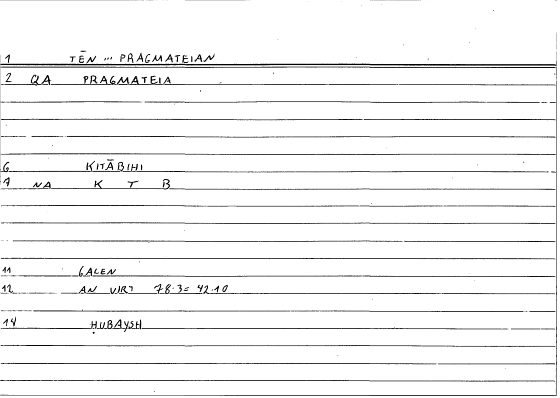 1 TĒN ... PRAGMATEIAN
2 QA PRAGMATEIA
6 KITĀBIHI
7 NA K T B
11 GALEN
12 AN VIRT 78.3 = 42.10
14 ḤUBAYSH